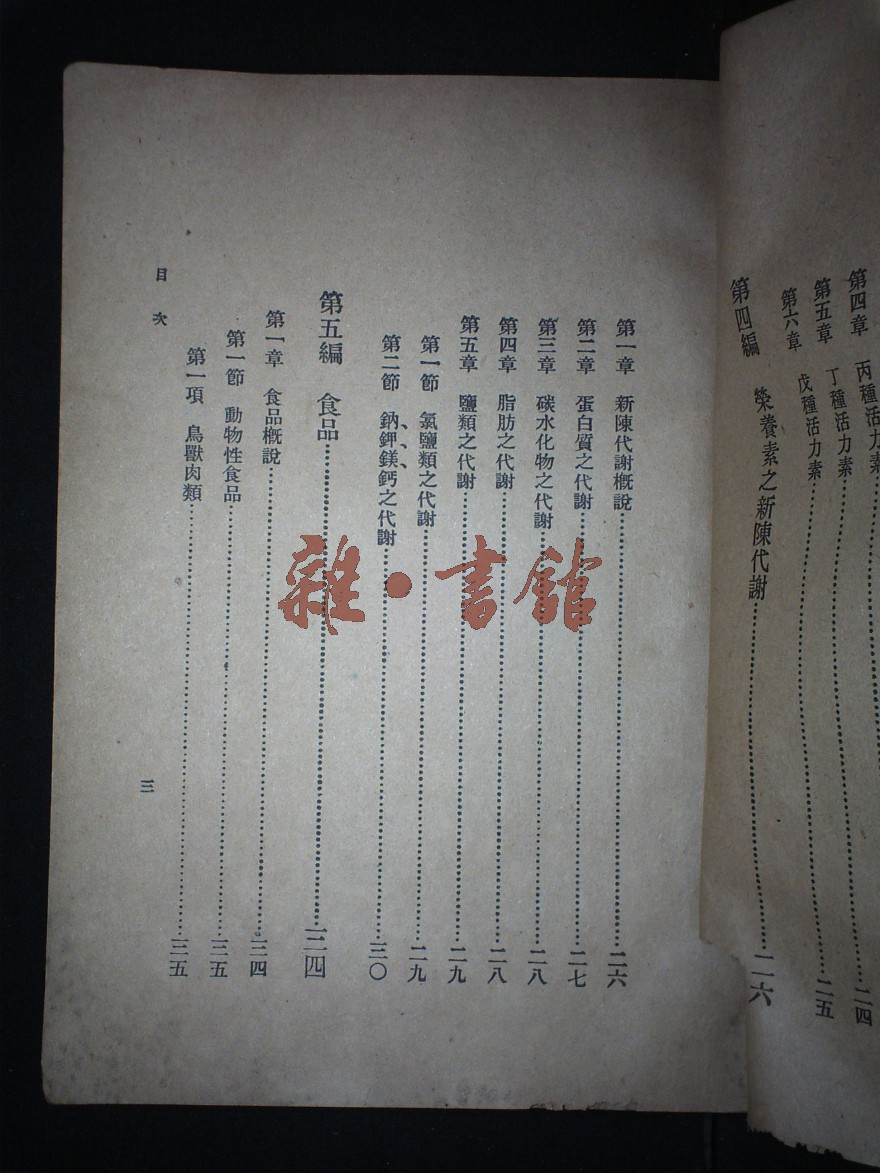 第四章　丙種活力素……二四
第五章　丁種活力素……二五
第六章　戊種活力素
第四編　榮養素之新陳代謝……二六
第一章　新陳代謝概說……二六
第二章　蛋白質之代謝……二七
第三章　碳水化物之代謝……二八
第四章　脂肪之代謝……二八
第五章　鹽類之代謝……二九
第一節　氯鹽類之代謝……二九
第二節　鈉、鉀、鎂、鈣之代謝……三〇
第五編　食品……三四
第一章　食品概說……三四
第一節　動物性食品……三五
第一項　鳥獸肉類……三五
目次
三
雜·書館